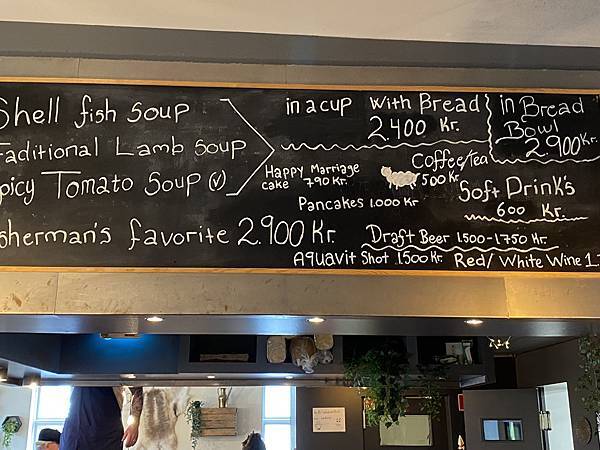 Shell fish Soup
Traditional Lamb Soup
Spicy Tomato Soup (V)
in a cup With Bread
2.400 Kr.
in Bread
Bowl
2.900 Kr.
Happy Marriage
cake 790 Kr.
Coffee/tea
500 Kr
Pancakes 1.000 Kr
Soft Drink's
600 Kr.
Fisherman's favorite 2.900 Kr.
Draft Beer 1500-1750 Kr.
Aquavit Shot 1.500 Kr.
Red/White Wine